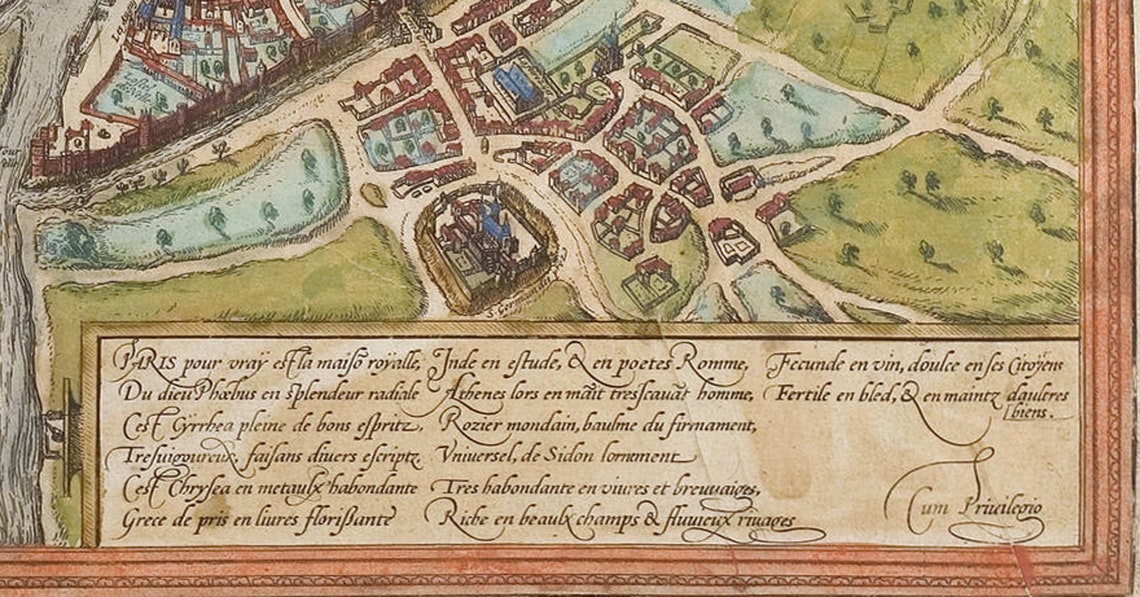 PARIS pour vraÿ est la maisõ royalle,
Du dieu Phœbus en splendeur radiale
C'est Cÿrrhea pleine de bons espritz,
Tresuigoureux, faisans divers escriptz
C'est Chrysea en metaulx habondante
Grece de pris en liures florißante
Inde en estude, & en poetes Romme,
Athenes lors en maĩt tresscauãt homme,
Rozier mondain, baulme du firnament,
Vniversel, de Sidon lornement
Tres habondante en viures et breuuaiges,
Riche en beaulx champs & fluuieux riuages
Fecunde en vin, doulce en ses Citoÿens
Fertile en bled, & en maintz daultres
biens.
Cum Priuilegio